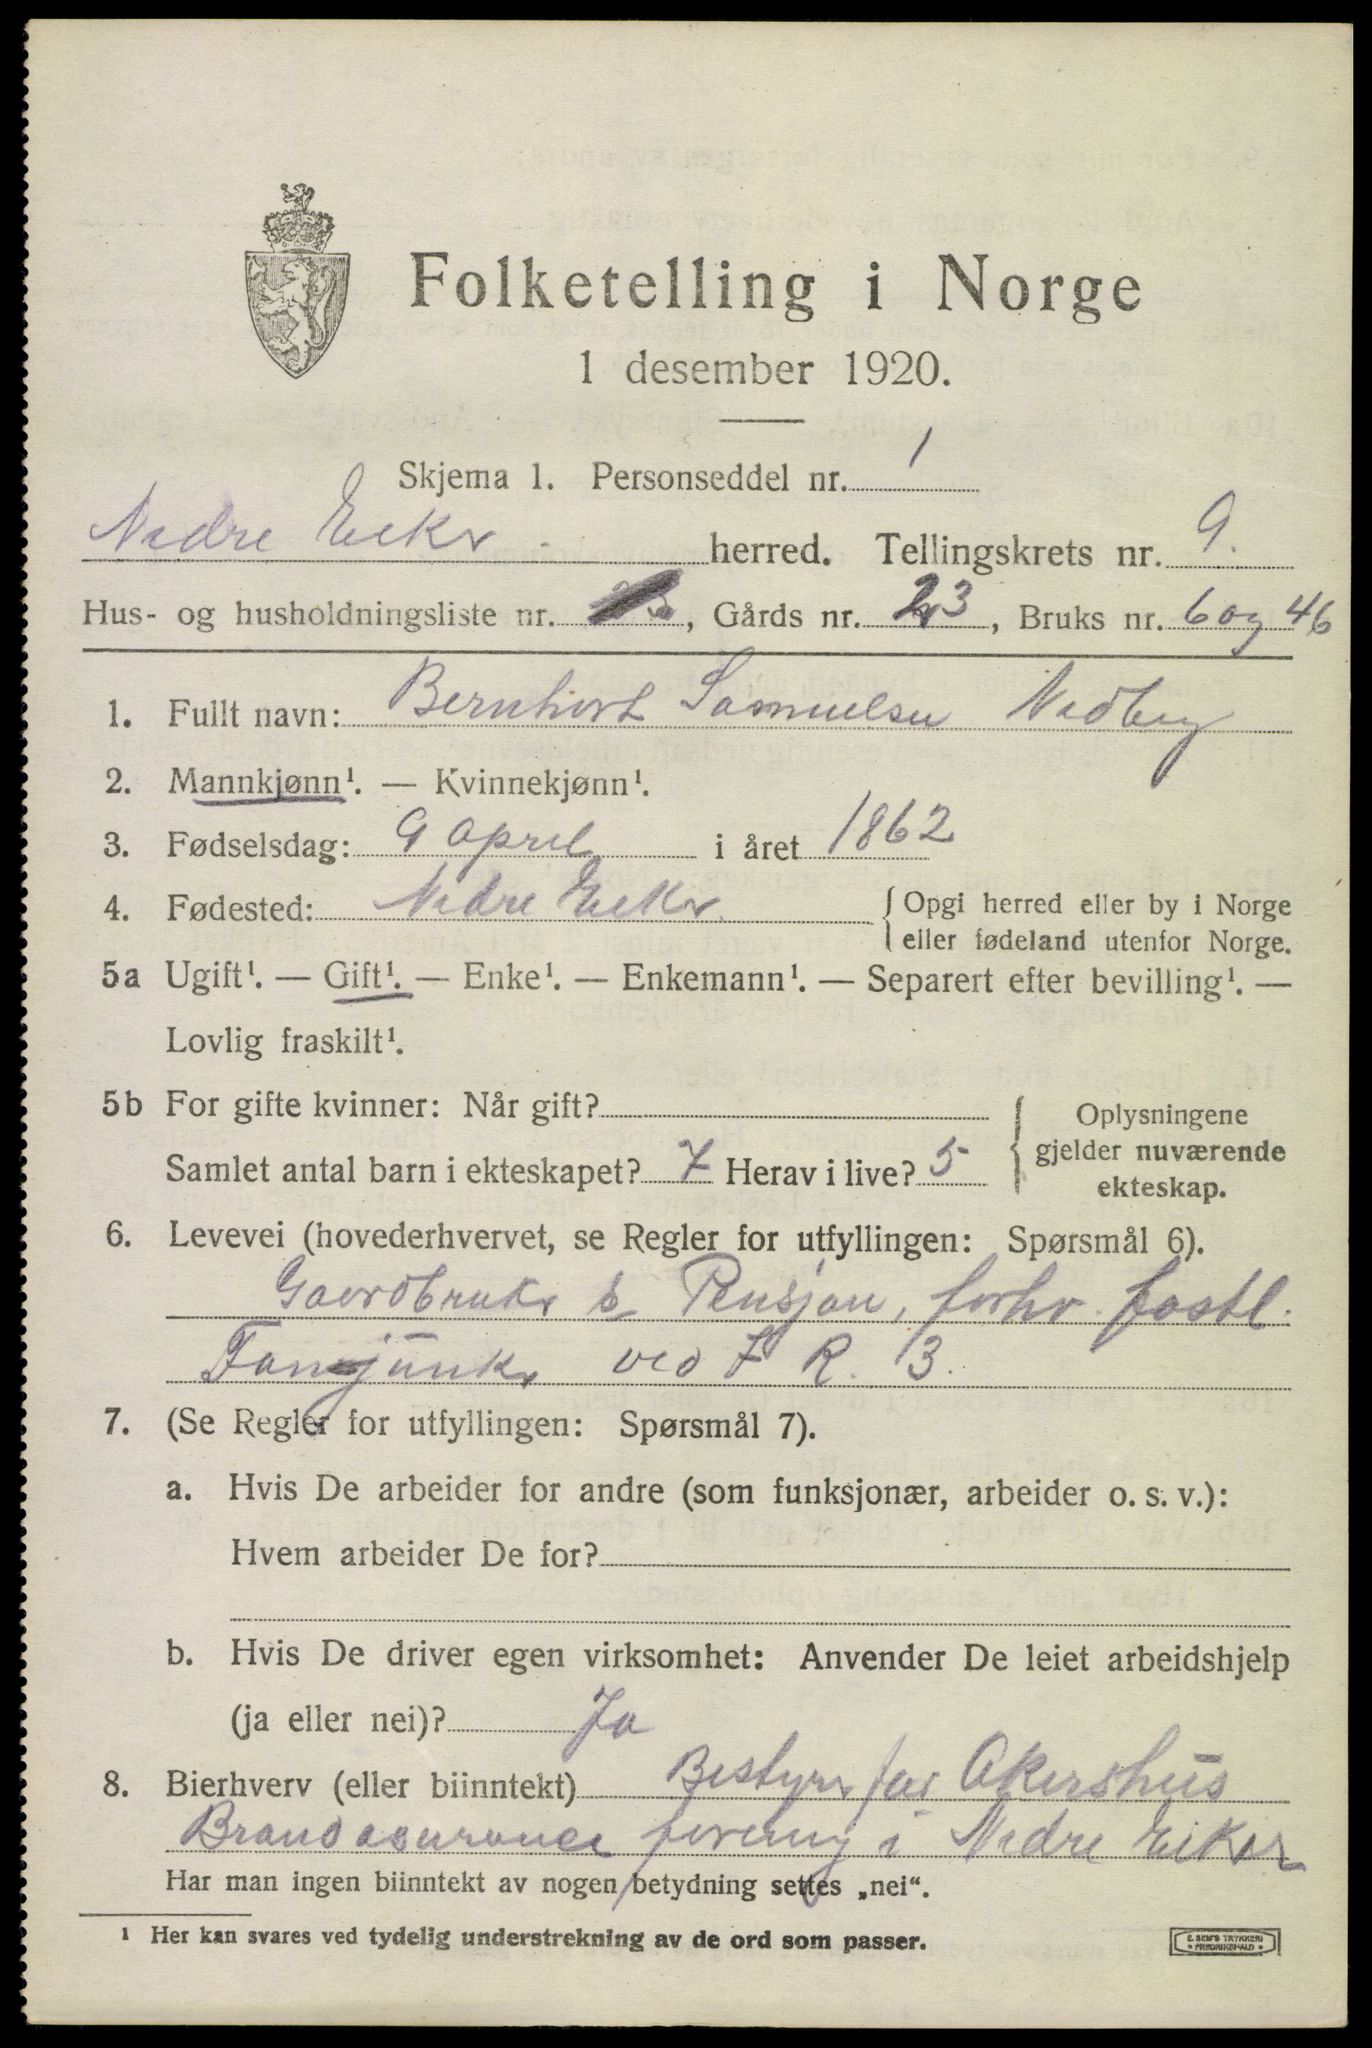 Folketelling i Norge
1 desember 1920.
Skjema 1. Personseddel nr. 1
Nedre Eeker herred. Tellingskrets nr. 9.
Hus- og husholdningsliste nr. , Gårds nr. 23, Bruks nr. 6 og 46
1. Fullt navn: Bernhart Samuelsen Nedberg
2. Mannkjønn¹. — Kvinnekjønn¹.
3. Fødselsdag: 9 april i året 1862
4. Fødested: Nedre Eeker. { Opgi herred eller by i Norge
eller fødeland utenfor Norge.
5a Ugift¹. — Gift¹. — Enke¹. — Enkemann¹. — Separert efter bevilling¹. —
Lovlig fraskilt¹.
5b For gifte kvinner: Når gift? { Oplysningene
gjelder nuværende
ekteskap.
Samlet antal barn i ekteskapet? 7 Herav i live? 5
6. Levevei (hovederhvervet, se Regler for utfyllingen: Spørsmål 6).
Gaardbruker & Pensjon, forhv. fastl.
Fanejunker ved I R. 3.
7. (Se Regler for utfyllingen: Spørsmål 7).
a. Hvis De arbeider for andre (som funksjonær, arbeider o. s. v.):
Hvem arbeider De for?
b. Hvis De driver egen virksomhet: Anvender De leiet arbeidshjelp
(ja eller nei)? Ja
8. Bierhverv (eller biinntekt) Bestyrer for Akershus
Brandassurance forening i Nedre Eiker
Har man ingen biinntekt av nogen betydning settes „nei“.
¹ Her kan svares ved tydelig understrekning av de ord som passer.
E. SEM'S TRYKKERI
FREDRIKSHALD